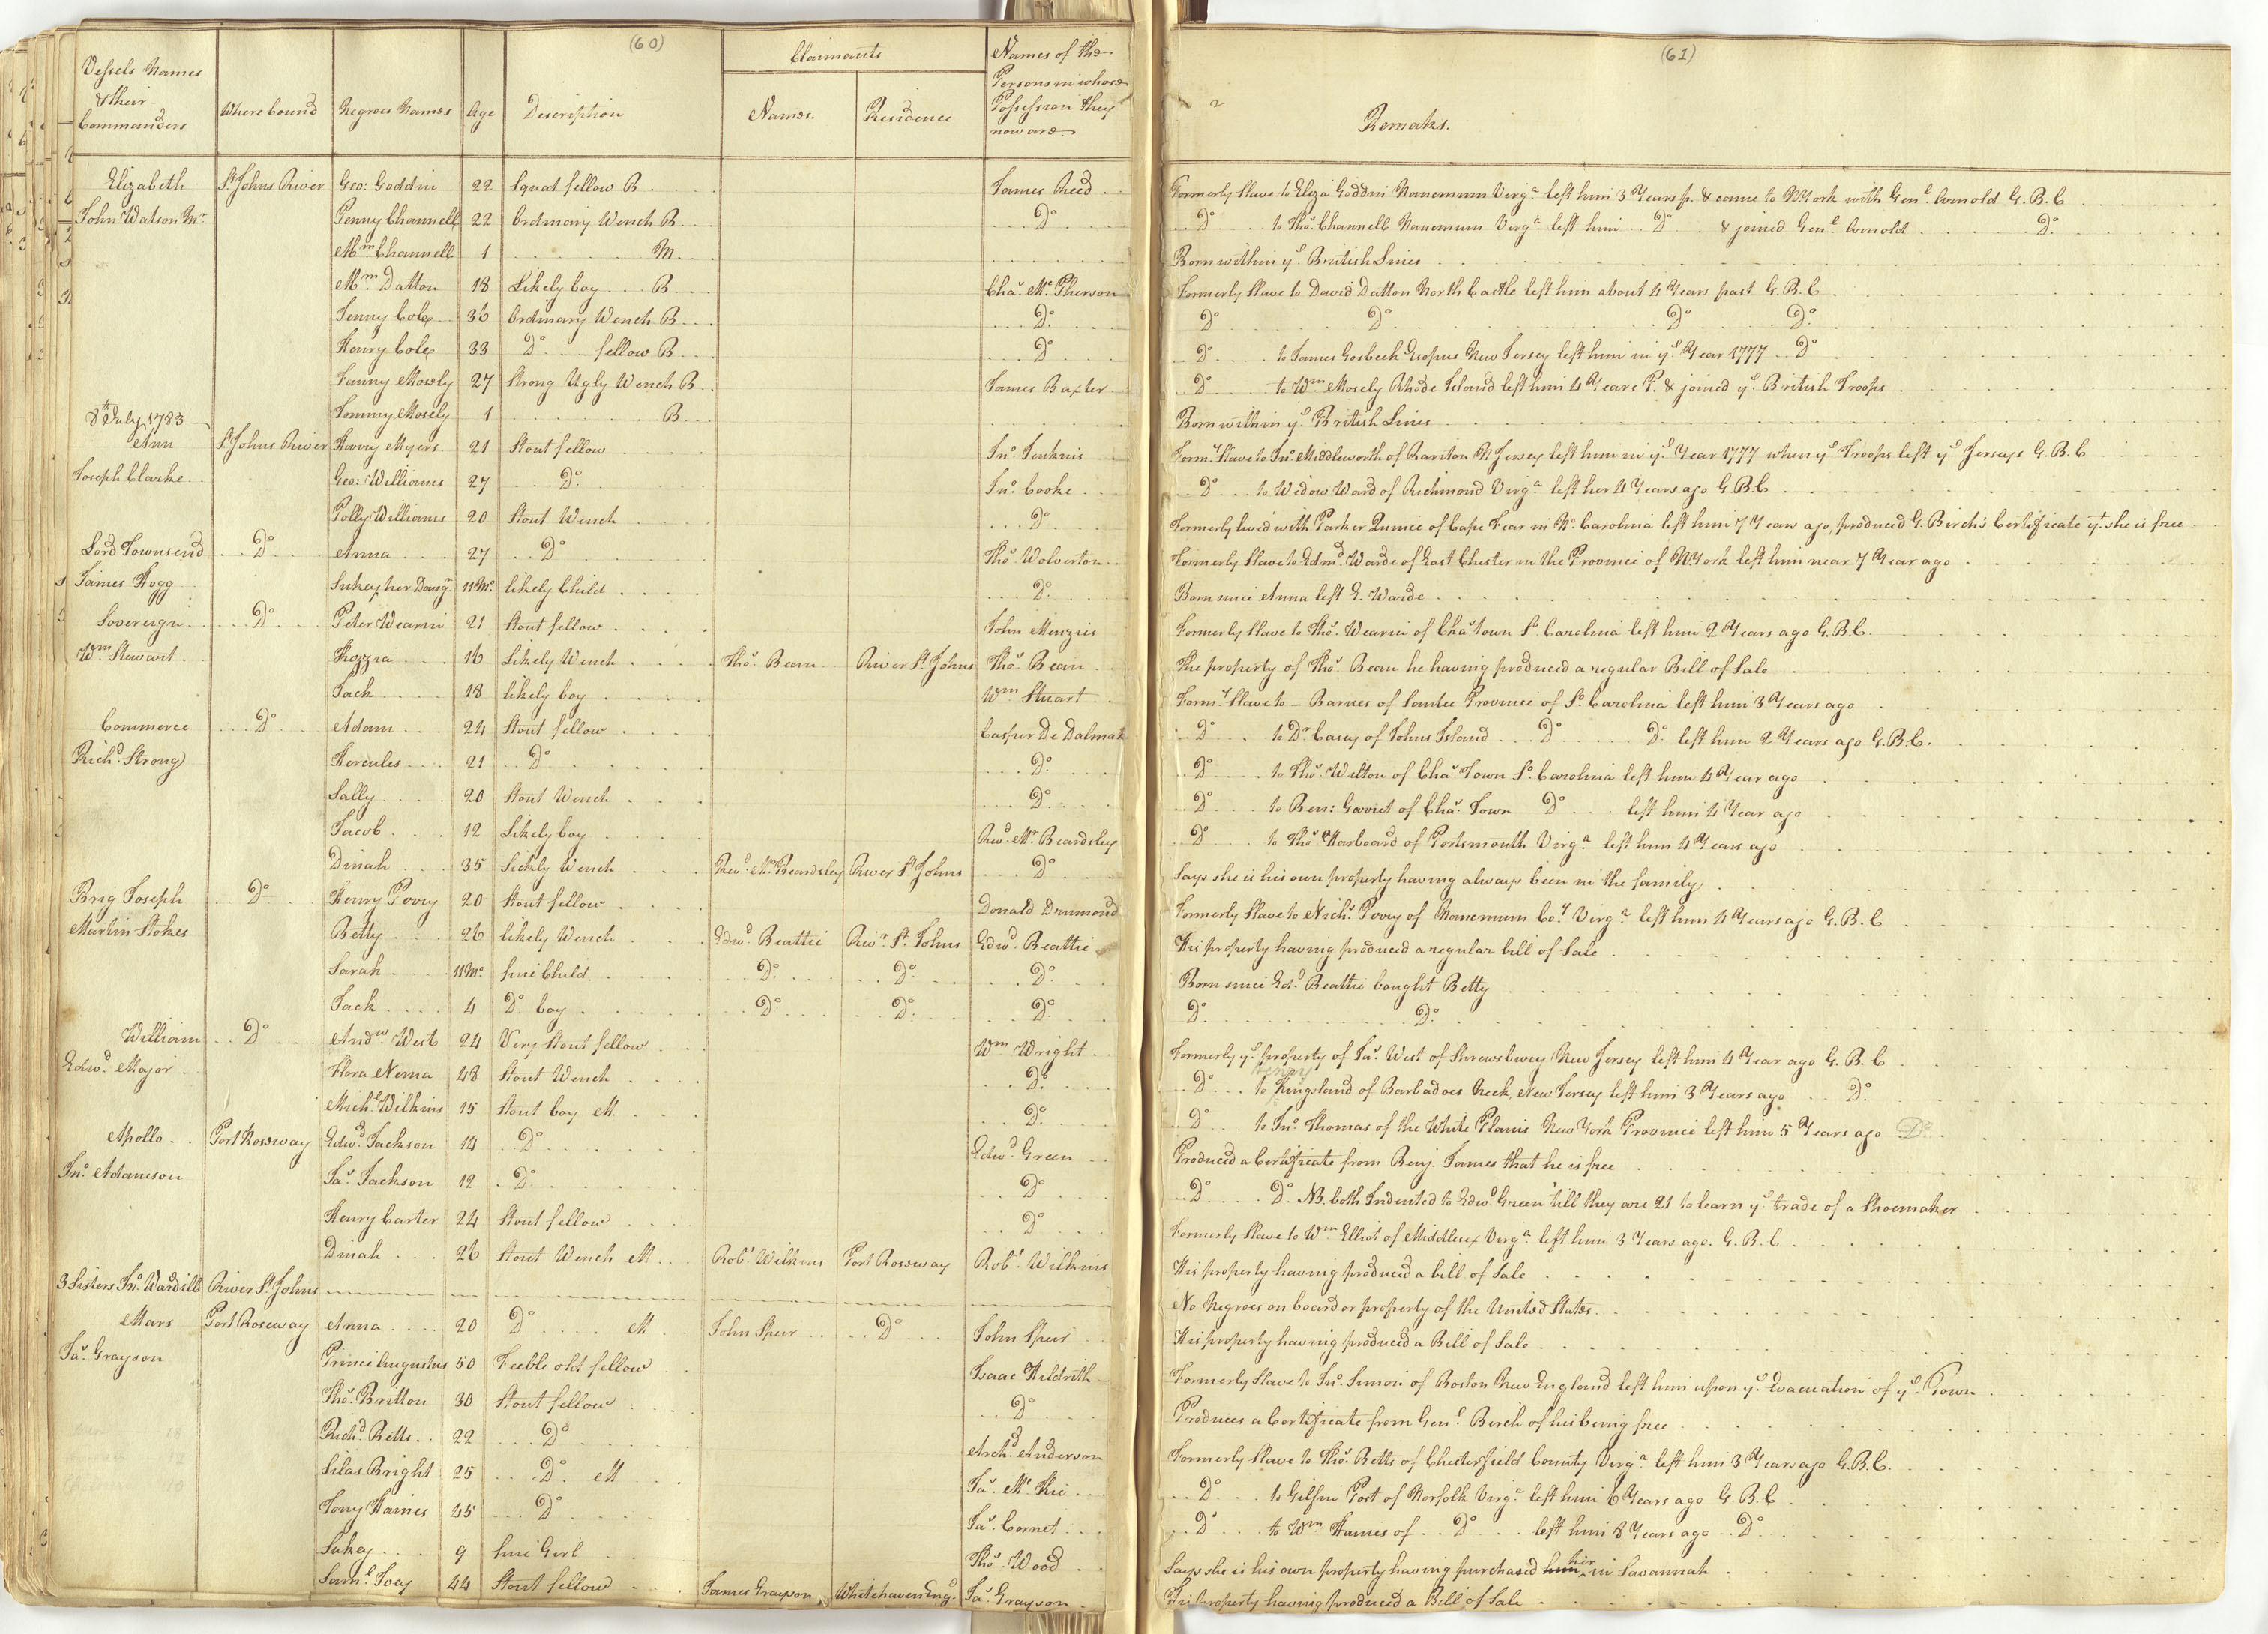 (60)
Vessels Names & their Commanders | Where bound | Negroes Names | Age | Description | Claimants Names. | Residence | Names of the Persons in whose Possession they now are.
(61)
Remarks.
Elizabeth | St Johns River | Geo: Goddin | 22 | Squat fellow B | James Reed | Formerly Slave to Eliza Goddin Nancemun Virga. left him 3 Years p. & came to N York with Genl. Arnold G.B.C
John Watson Mr. | Penny Channell | 22 | Ordinary Wench B | Do | Do to Thos. Channell Nancemun Virga. left him Do & joined Genl Arnold Do
Wm Channell | 1 | M | Born within ye British Lines
Wm Datton | 18 | Likely boy B | Chas. Mc Pherson | Formerly Slave to David Datton North Castle left him about 4 Years past G.B.C
Jenny Cole | 36 | Ordinary Wench B | Do | Do Do Do Do
Henry Cole | 33 | Do fellow B | Do | Do to James Gosbeck Esopus New Jersey left him in ye Year 1777 Do
Fanny Mosely | 27 | Strong Ugly Wench B | James Baxter | Do to Wm Mosely Rhode Island left him 4 Years P. & joined ye British Troops
Tommy Mosely | 1 | B | Born within ye British Lines
8th July 1783
Ann | St Johns River | Harry Myers | 21 | Stout fellow | Jno. Jenkins | Formy. Slave to Jno. Middleworth of Rariton N Jersey left him in ye Year 1777 when ye Troops left ye Jerseys G.B.C
Joseph Clarke | Geo: Williams | 27 | Do | Jno. Cooke | Do to Widow Ward of Richmond Virga. left her 4 Years ago G.B.C
Polly Williams | 20 | Stout Wench | Do | Formerly lived with Parker Quince of Cape Fear in No. Carolina left him 7 Years ago, produced G. Birch's Certificate yt. she is free
Lord Townsend | Do | Anna | 27 | Do | Thos. Wolverton | Formerly Slave to Edmd. Warde of East Chester in the Province of N York left him near 7 Year ago
James Hogg | Sukey her Daugr. | 11 Mo. | likely Child | Do | Born since Anna left E. Warde
Sovereign | Do | Peter Wearin | 21 | Stout fellow | John Menzies | Formerly Slave to Thos. Wearin of Chas. Town So. Carolina left him 2 Years ago G.B.C.
Wm Stewart | Kezzia | 16 | Likely Wench | Thos. Bean | River St. Johns | Thos. Bean | The property of Thos. Bean he having produced a regular Bill of Sale
Jack | 18 | likely boy | Wm Stuart | Formy. Slave to — Barnes of Santee Province of So. Carolina left him 3 Years ago
Commerce | Do | Adam | 24 | Stout fellow | Casper De Dalmat | Do to Dr. Casey of Johns Island Do Do left him 2 Years ago G.B.C.
Richd. Strong | Hercules | 21 | Do | Do | Do to Thos. Wilton of Chas. Town So. Carolina left him 4 Year ago
Sally | 20 | Stout Wench | Do | Do to Ben: of Chas. Town Do left him 4 Year ago
Jacob | 12 | Likely boy | Revd. Mr. Beardsley | Do to Thos. Harboard of Portsmouth Virga. left him 4 Years ago
Dinah | 35 | Sickly Wench | Revd. Mr. Beardsley | River St Johns | Do | Says she is his own property having always been in the family
Brig Joseph | Do | Henry Povey | 20 | Stout fellow | Donald Drumond | Formerly Slave to Nichs. Povey of Nancemum Coy. Virga. left him 4 Years ago G.B.C
Martin Stokes | Betty | 26 | likely Wench | Edwd. Beattie | Rivr. St. Johns | Edwd. Beattie | His property having produced a regular bill of Sale
Sarah | 11 Mo. | fine Child | Do | Do | Do | Born since Edd. Beattie bought Betty
Jack | 4 | Do boy | Do | Do | Do | Do Do
William | Do | Andw. West | 24 | Very Stout fellow | Wm Wright | Formerly ye property of Jas. West of Shrewsbury New Jersey left him 4 Year ago G.B.C
Edwd. Major | Flora Nema | 48 | Stout Wench | Do | Do to Henry Kingsland of Barbadoes Neck, New Jersey left him 3 Years ago Do
Michl. Wilkins | 15 | Stout boy M. | Do | Do to Jno. Thomas of the White Plains New York Province left him 5 Years ago Do
Apollo | Port Roseway | Edwd. Jackson | 14 | Do | Edwd. Green | Produced a Certificate from Benj. James that he is free
Jno. Adamson | Jas. Jackson | 12 | Do | Do | Do Do NB. both Indented to Edwd. Green till they are 21 to learn ye trade of a Shoemaker
Henry Carter | 24 | Stout fellow | Do | Formerly Slave to Wm. Elliot of Middlesex Virga. left him 3 Years ago. G.B.C
Dinah | 26 | Stout Wench M | Robt. Wilkins | Port Roseway | Robt. Wilkins | His property having produced a bill of Sale
3 Sisters, Jno. Wardill | River St Johns | No Negroes on board or property of the United States.
Mars | Port Roseway | Anna | 20 | Do M | John Speir | Do | John Speir | His property having produced a Bill of Sale
Jas. Grayson | Prince Augustus | 50 | Feeble old fellow | Isaac Hildrith | Formerly Slave to Jno. Simon of Boston New England left him upon ye Evacuation of ye Town
Thos. Britton | 30 | Stout fellow | Do | Produces a Certificate from Genl. Birch of his being free
Richd. Betts | 22 | Do | Archd. Anderson | Formerly Slave to Thos. Betts of Chesterfield County Virga. left him 3 Years ago G.B.C.
Silas Bright | 25 | Do M | Jas. Mc. Kie | Do to Gilfin Post of Norfolk Virga. left him 6 Years ago G.B.C
Tony Haines | 45 | Do | Jas. Cornet | Do to Wm Haines of Do left him 8 Years ago Do
Sukey | 9 | fine Girl | Thos. Wood | Says she is his own property having purchased him her in Savannah
Saml. Joey | 44 | Stout fellow | James Grayson | Whitehaven Engd. | Jas. Grayson | His property having produced a Bill of Sale